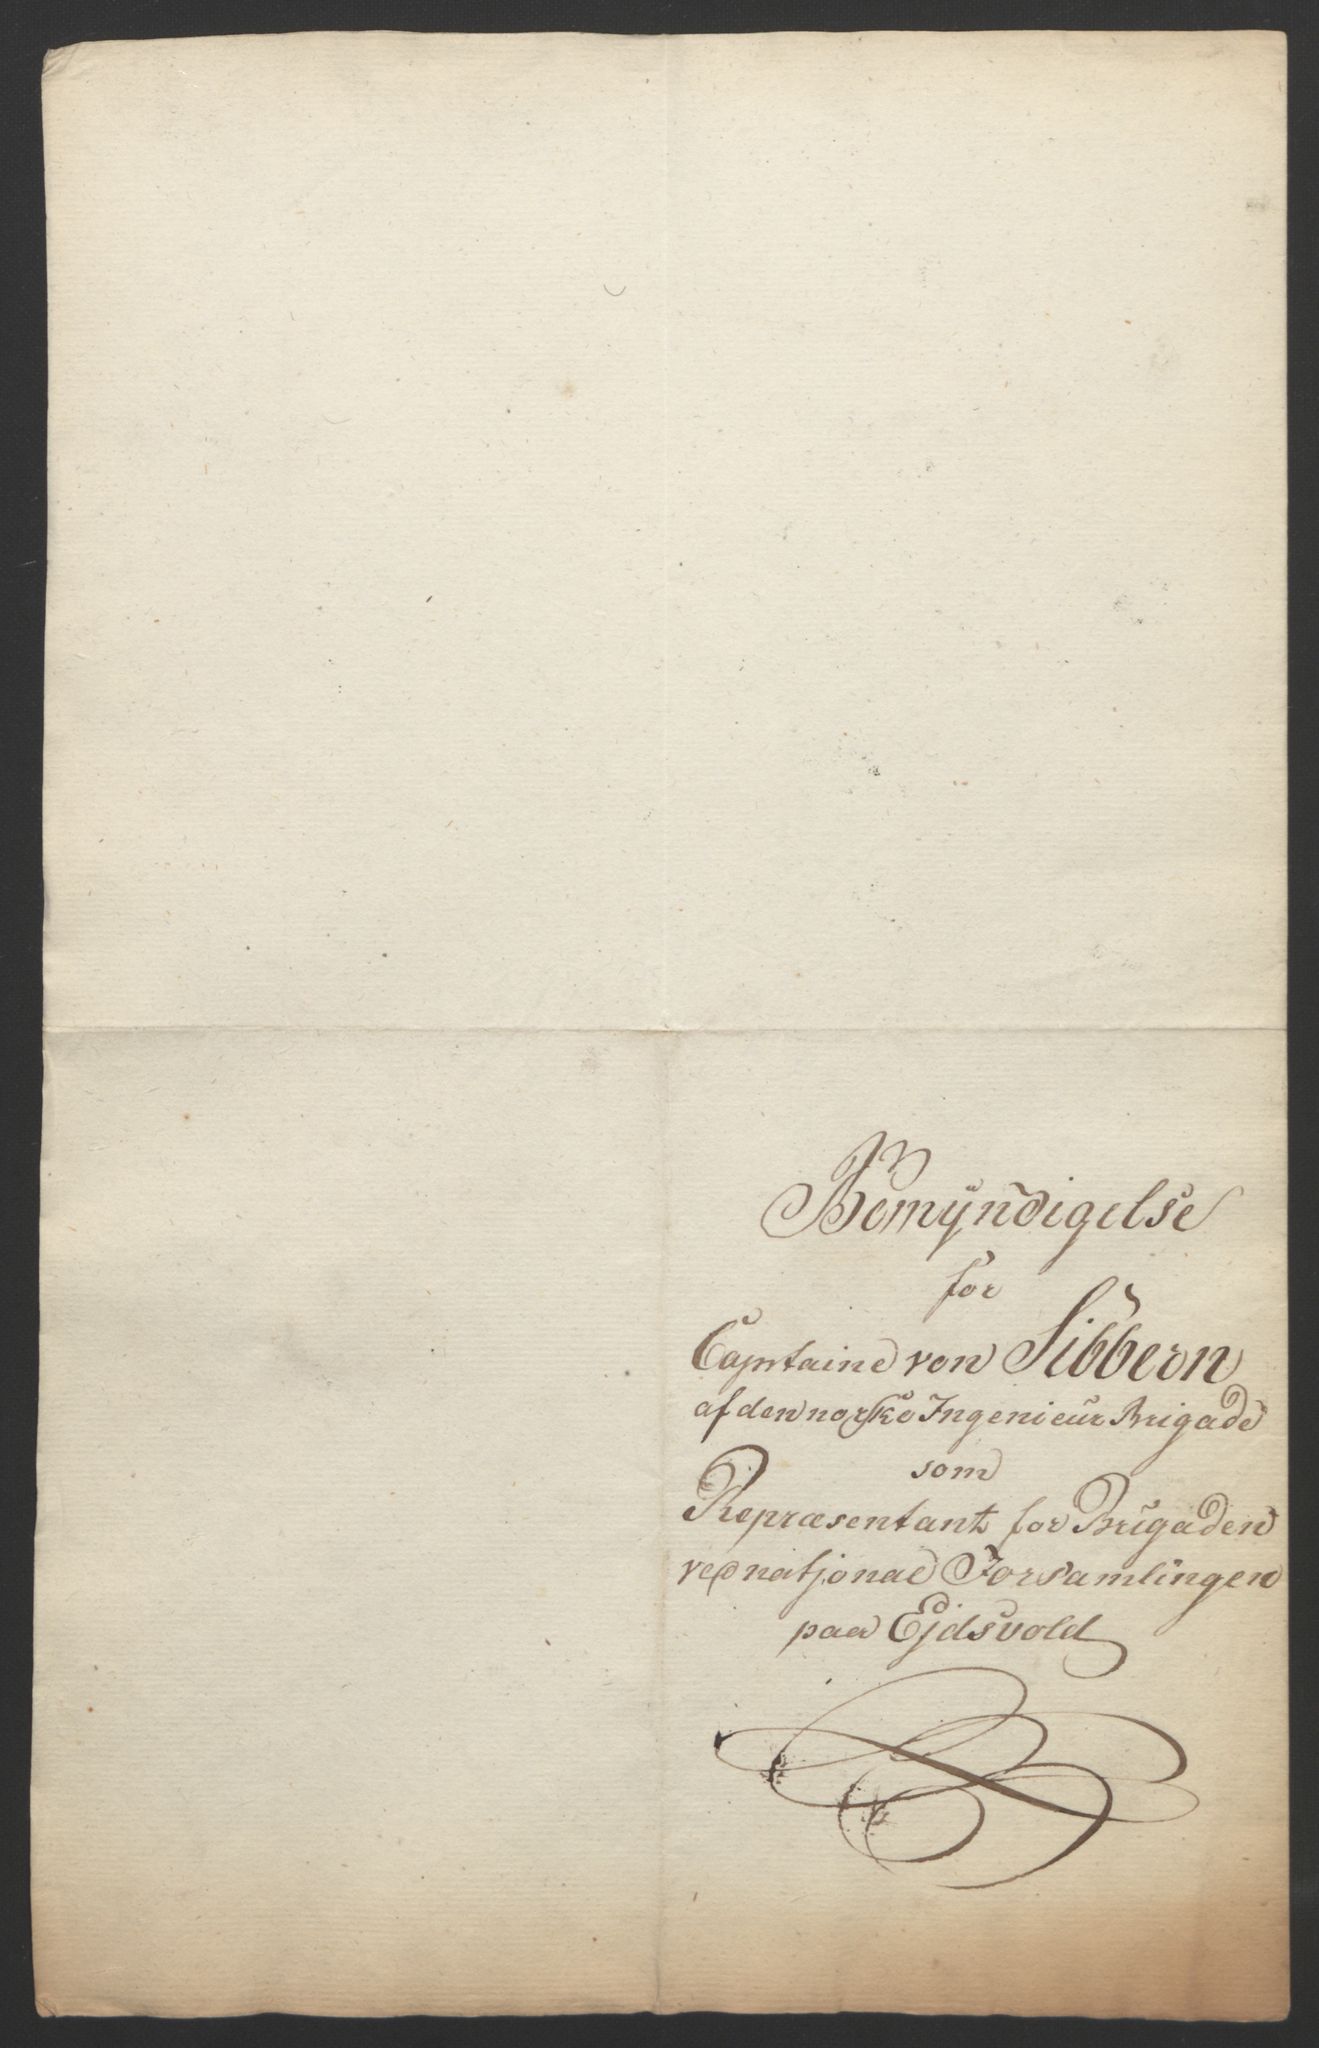 Bemÿndigelse
for
Captaine von Sibbern
af den norske Ingenieur Brigade
som
Repræsentant for Brigaden
ved natjonal Forsamlingen
paa Ejdsvold